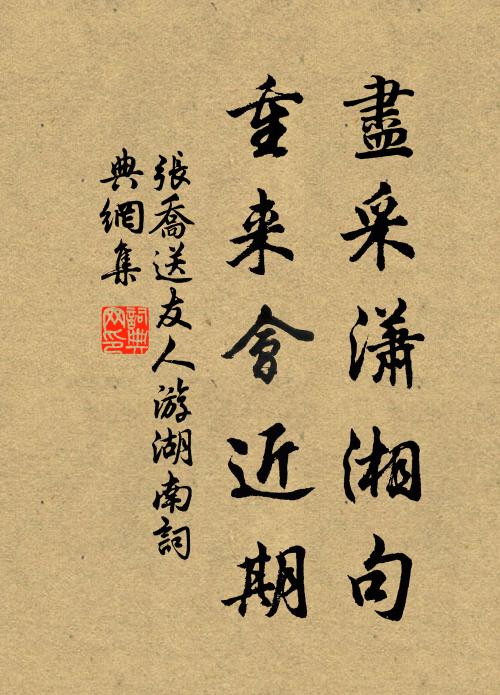 盡采瀟湘句
重来會近期
張喬送友人游湖南詞
典網集
詞典網印